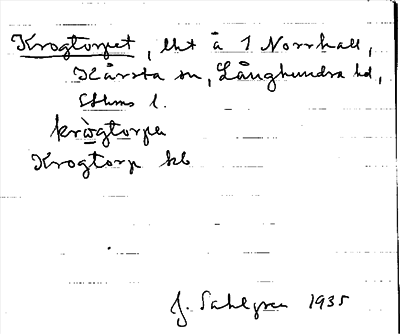 Krogtorpet, lht å 1 Norrhall,
Kårsta sn, Långhundra hd,
Sthlms l.
krògtorpe
Krogtorp kb
J. Sahlgren 1935